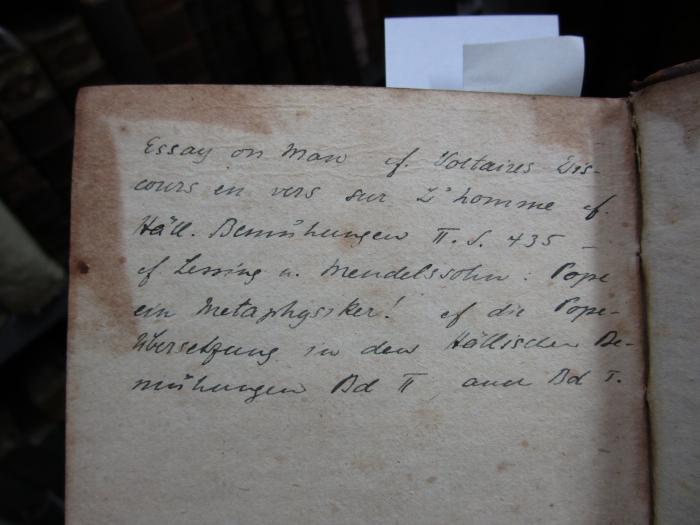 Essay on Man cf. Voltaires Dis-
cours en vers sur L'homme cf.
Häll. Bemühungen II. S. 435 –
cf Lessing u. Mendelssohn: Pope
ein Metaphysiker! cf die Pope-
übersetzung in den Hällischen Be-
mühungen Bd II, Bd I.